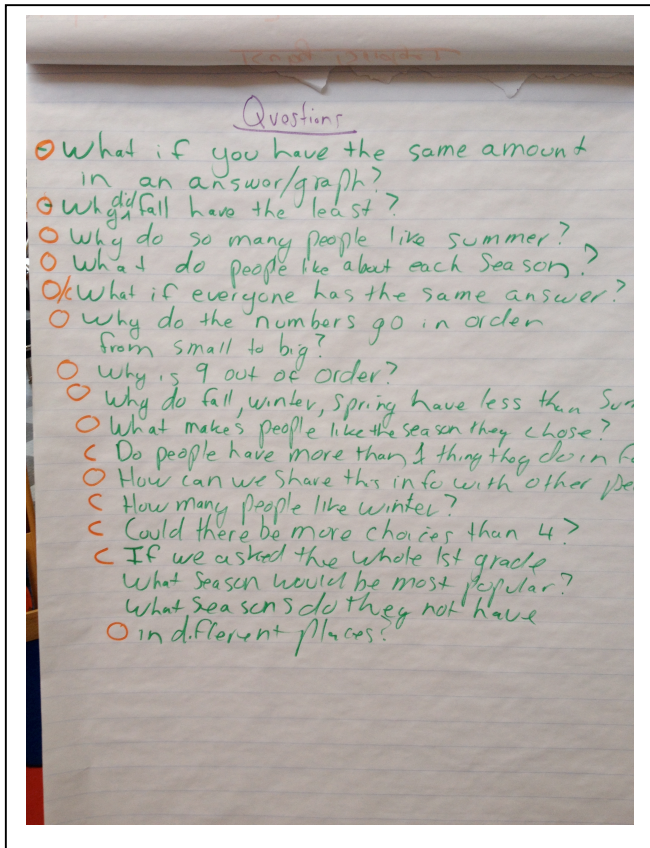 Questions
O What if you have the same amount
in an answer/graph?
O Why did fall have the least?
O Why do so many people like summer?
O What do people like about each season?
O/C What if everyone has the same answer?
O Why do the numbers go in order
from small to big?
O Why is 9 out of order?
O Why do fall, winter, spring have less than Sum
O What makes people like the season they chose?
C Do people have more than 1 thing they do in
O How can we share this info with other pe
C How many people like winter?
C Could there be more choices than 4?
C If we asked the whole 1st grade
What season would be most popular?
What seasons do they not have
O in different places?